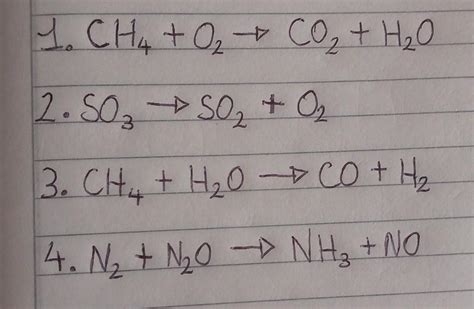 1. CH₄ + O₂ → CO₂ + H₂O
2. SO₃ → SO₂ + O₂
3. CH₄ + H₂O → CO + H₂
4. N₂ + N₂O → NH₃ + NO